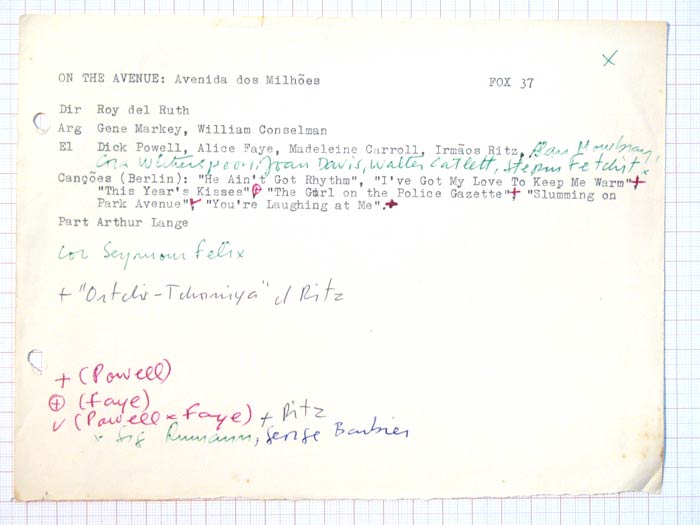 X
ON THE AVENUE: Avenida dos Milhões FOX 37
Dir Roy del Ruth
Arg Gene Markey, William Conselman
El Dick Powell, Alice Faye, Madeleine Carroll, Irmãos Ritz, Alan Mowbray,
Cora Witherspoon, Joan Davis, Walter Catlett, Stepin Fetchit x
Canções (Berlin): "He Ain't Got Rhythm", "I've Got My Love To Keep Me Warm"+
"This Year's Kisses"⊕ "The Girl on the Police Gazette"+ "Slumming on
Park Avenue"✓ "You're Laughing at Me".+
Part Arthur Lange
cor Seymour Felix
+ "Ontchi-Tchoniya" c/ Ritz
+ (Powell)
⊕ (Faye)
✓ (Powell x Faye) + Ritz
x Sig Rumann, George Barbier